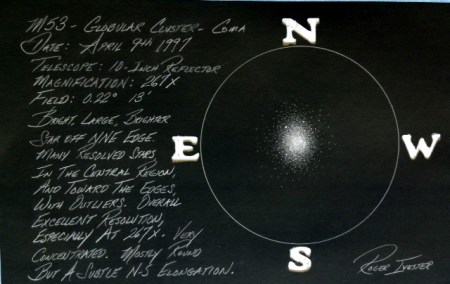 M53 - Globular Cluster - Coma
Date: April 9th 1997
Telescope: 10-Inch Reflector
Magnification: 267X
Field: 0.22° 13'
Bright, Large, Brighter
Star off NNE Edge.
Many Resolved Stars
In The Central Region,
And Toward The Edges,
With Outliers. Overall
Excellent Resolution,
Especially At 267X. Very
Concentrated. Mostly Round
But A Subtle N-S Elongation.
N
E
W
S
Roger Ivester